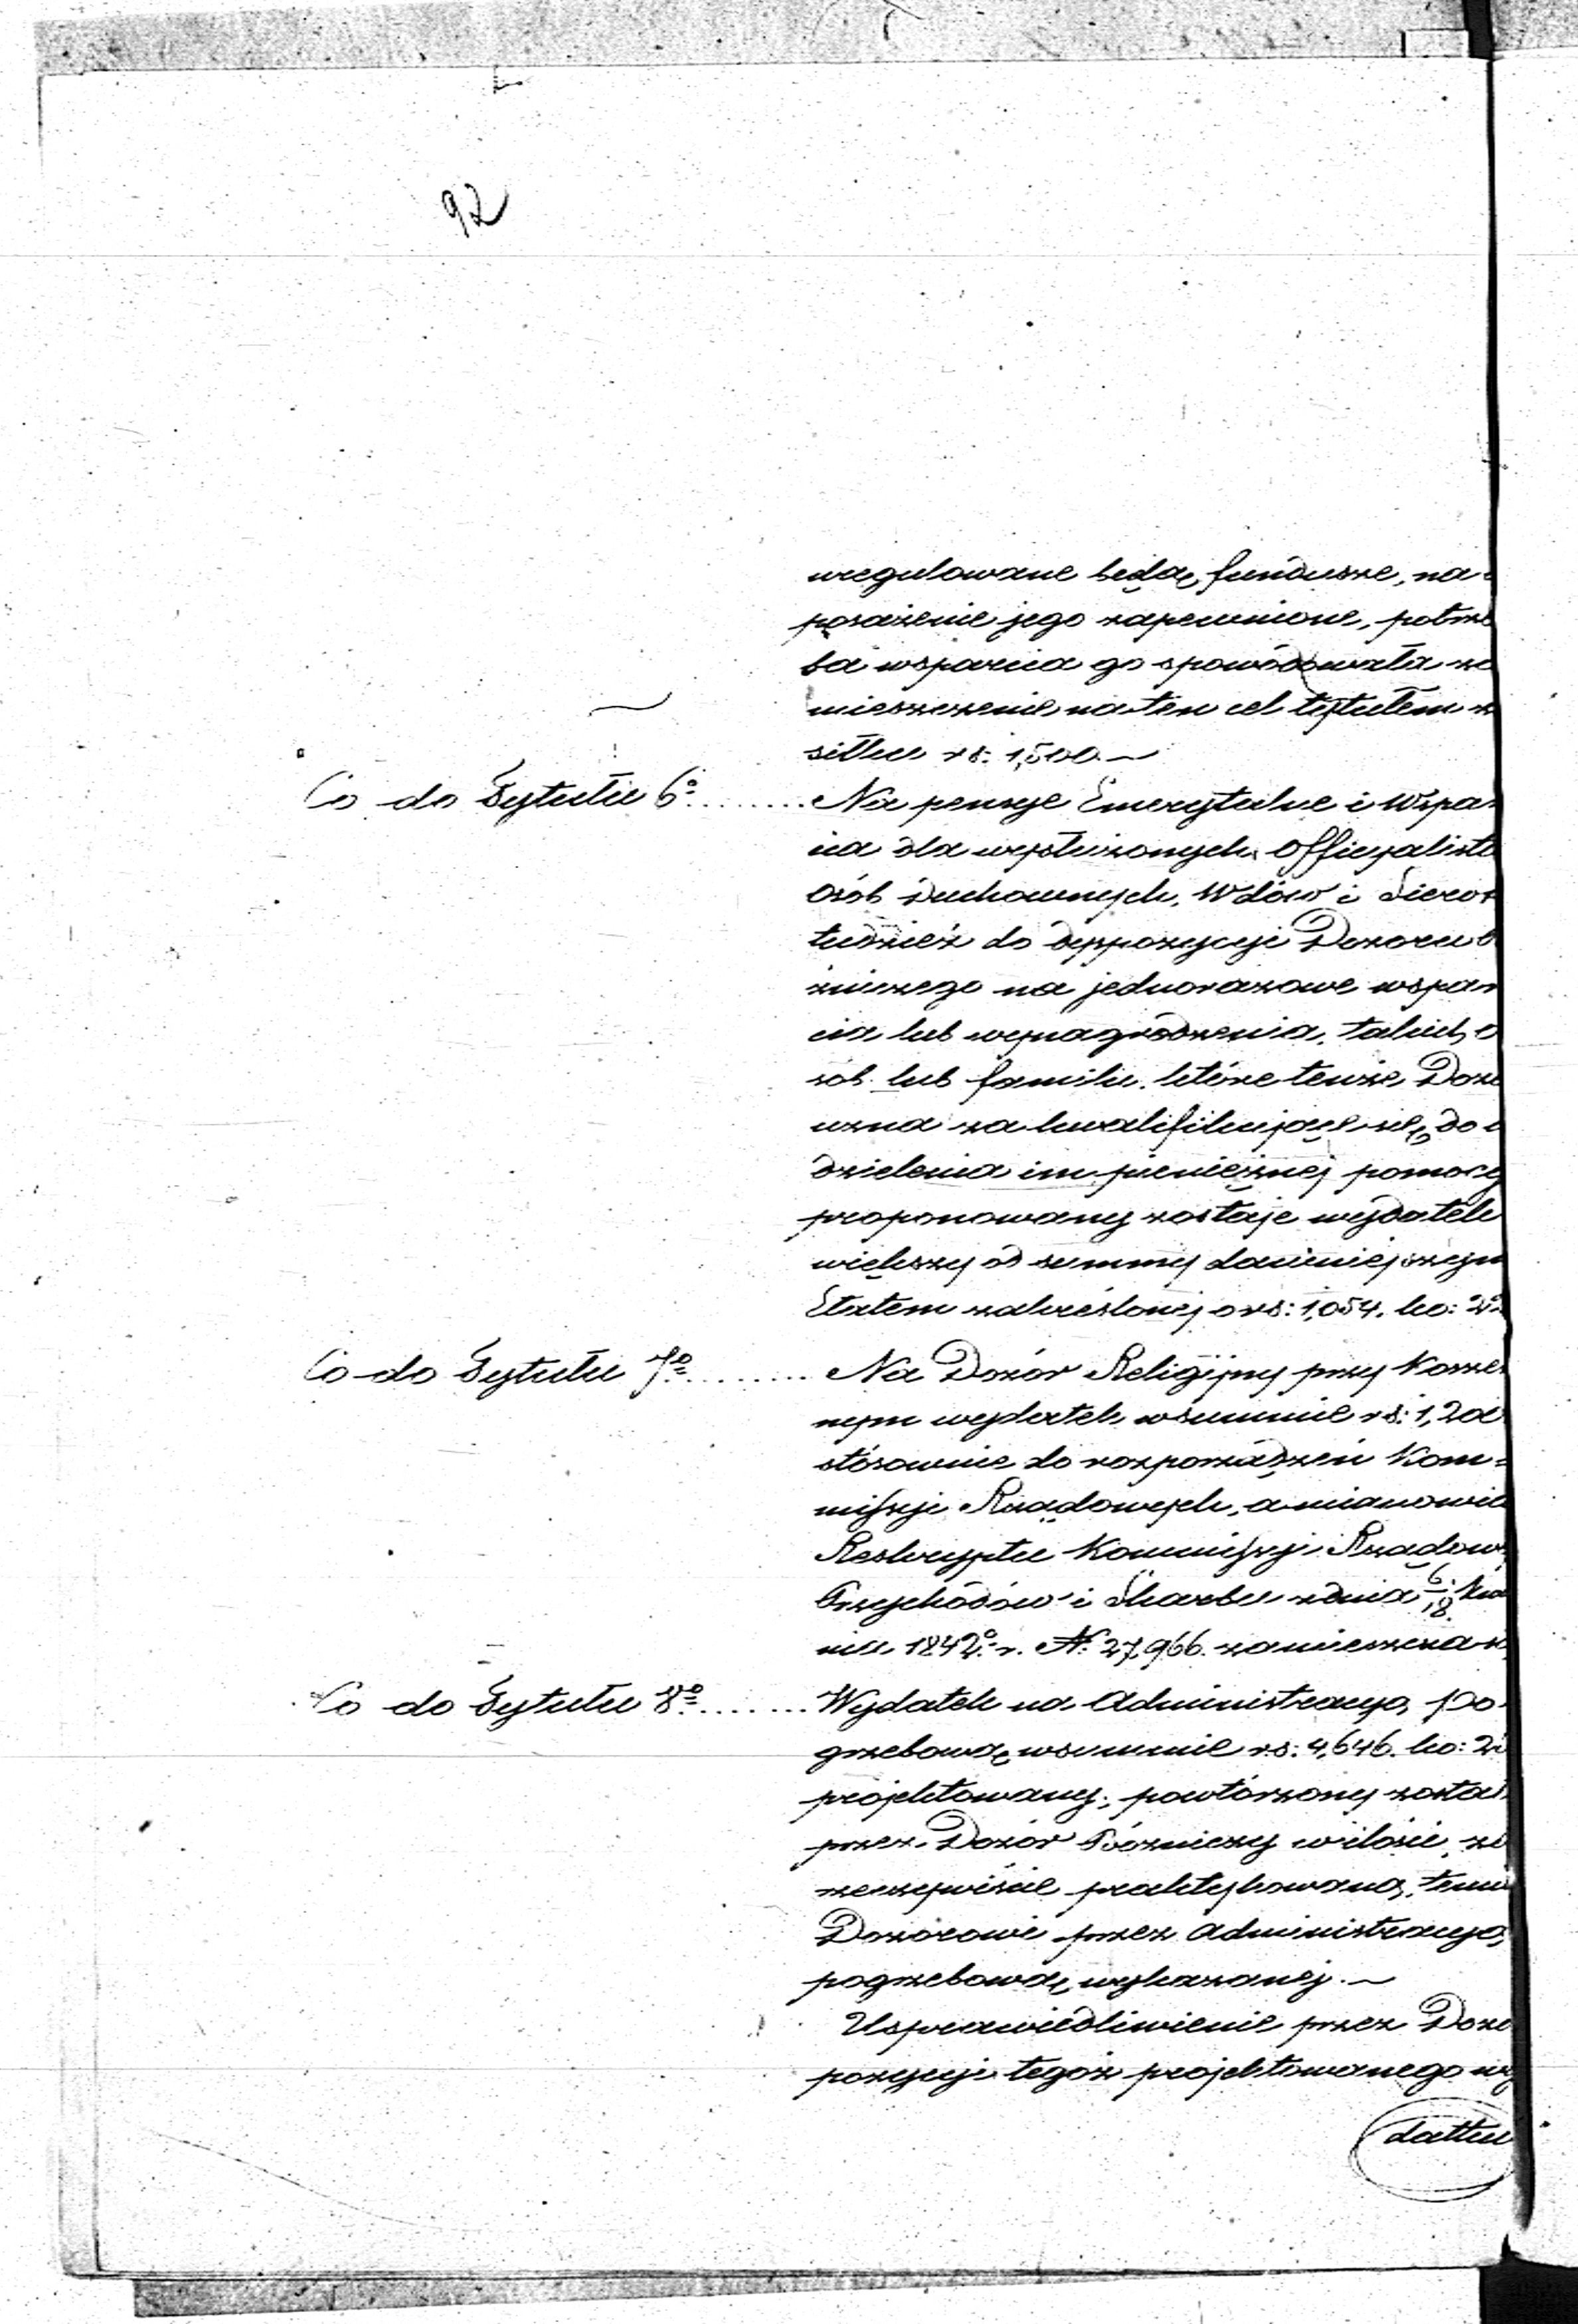 92
uregulowane będą fundusze, na
posażenie jego zapewnione, potrze
ba wsparcia go spowodowała za
mieszczenie na ten cel tytułem
siłku rs: 1,500.
Co do Tytułu 6º ....... Na pensye Emerytalne i Wspar
cia dla wysłużonych Officyalistó
Osób Duchownych, Wdów i Sierot
tudzież do dyspozycyi Dozoru B
żniczego na jednorazowe wspar
cia lub wynagrodzenia, takich o
sób lub familii, które tenże Dozó
uzna za kwalifikujące się do u
dzielenia im pieniężnej pomocy
proponowany zostaje wydatek
większy od summy dawniejszym
Etatem zakreślonej o rs: 1,054. ko: 22
Co do Tytułu 7º ....... Na Dozór Religijny przy Kosze
nym wydatek w summie rs: 1,20
stósownie do rozporządzeń Kom=
missyi Rządowych, a mianowic
Reskryptu Kommissyi Rządow
Przychodów i Skarbu z dnia 6/18 Kw
nia 1842º r. Nº 27,966. zamieszcza s
Co do Tytułu 8º ....... Wydatek na Administracyą Po
grzebową w summie rs: 4,646. ko:
projektowany, powtórzony został
przez Dozór Bóżniczy w ilości
rzeczywiście praktykowaną, temu
Dozorowi przez Administracyą
pogrzebową wykazanej.
Usprawiedliwienie przez Dozó
pozycyi tegoż projektowanego wy
datku